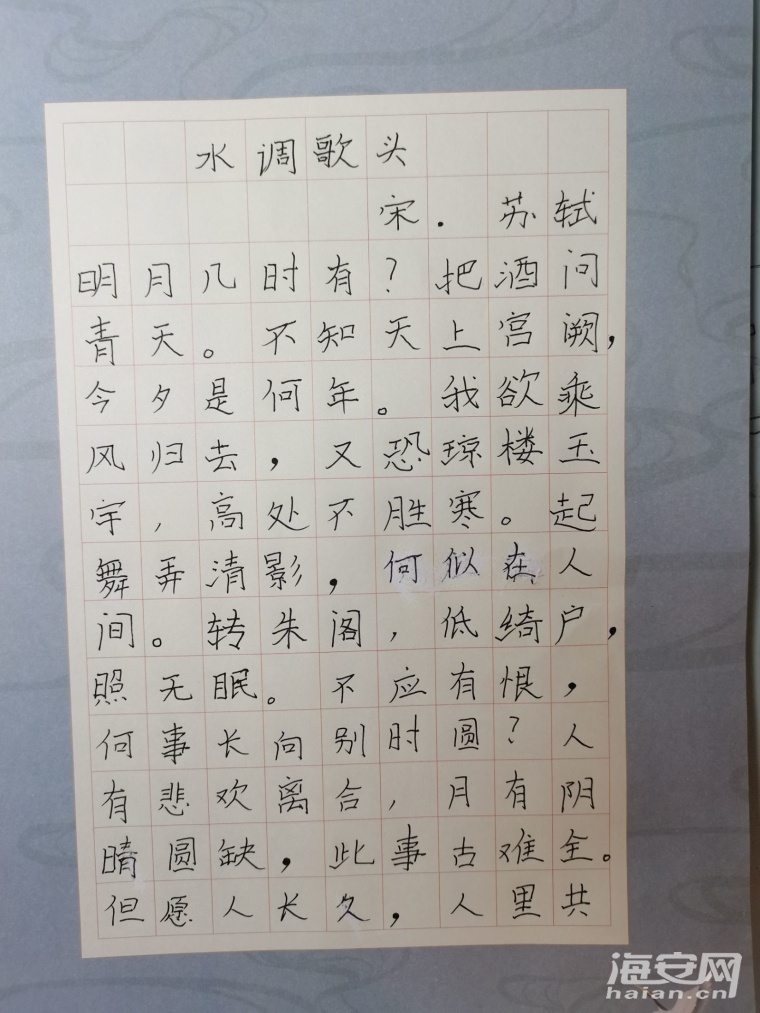 水调歌头
宋.苏轼
明月几时有?把酒问
青天。不知天上宫阙,
今夕是何年。我欲乘
风归去,又恐琼楼玉
宇,高处不胜寒。起
舞弄清影,何似在人
间。转朱阁,低绮户,
照无眠。不应有恨,
何事长向别时圆?人
有悲欢离合,月有阴
晴圆缺,此事古难全。
但愿人长久,人里共
海安网
haian.cn